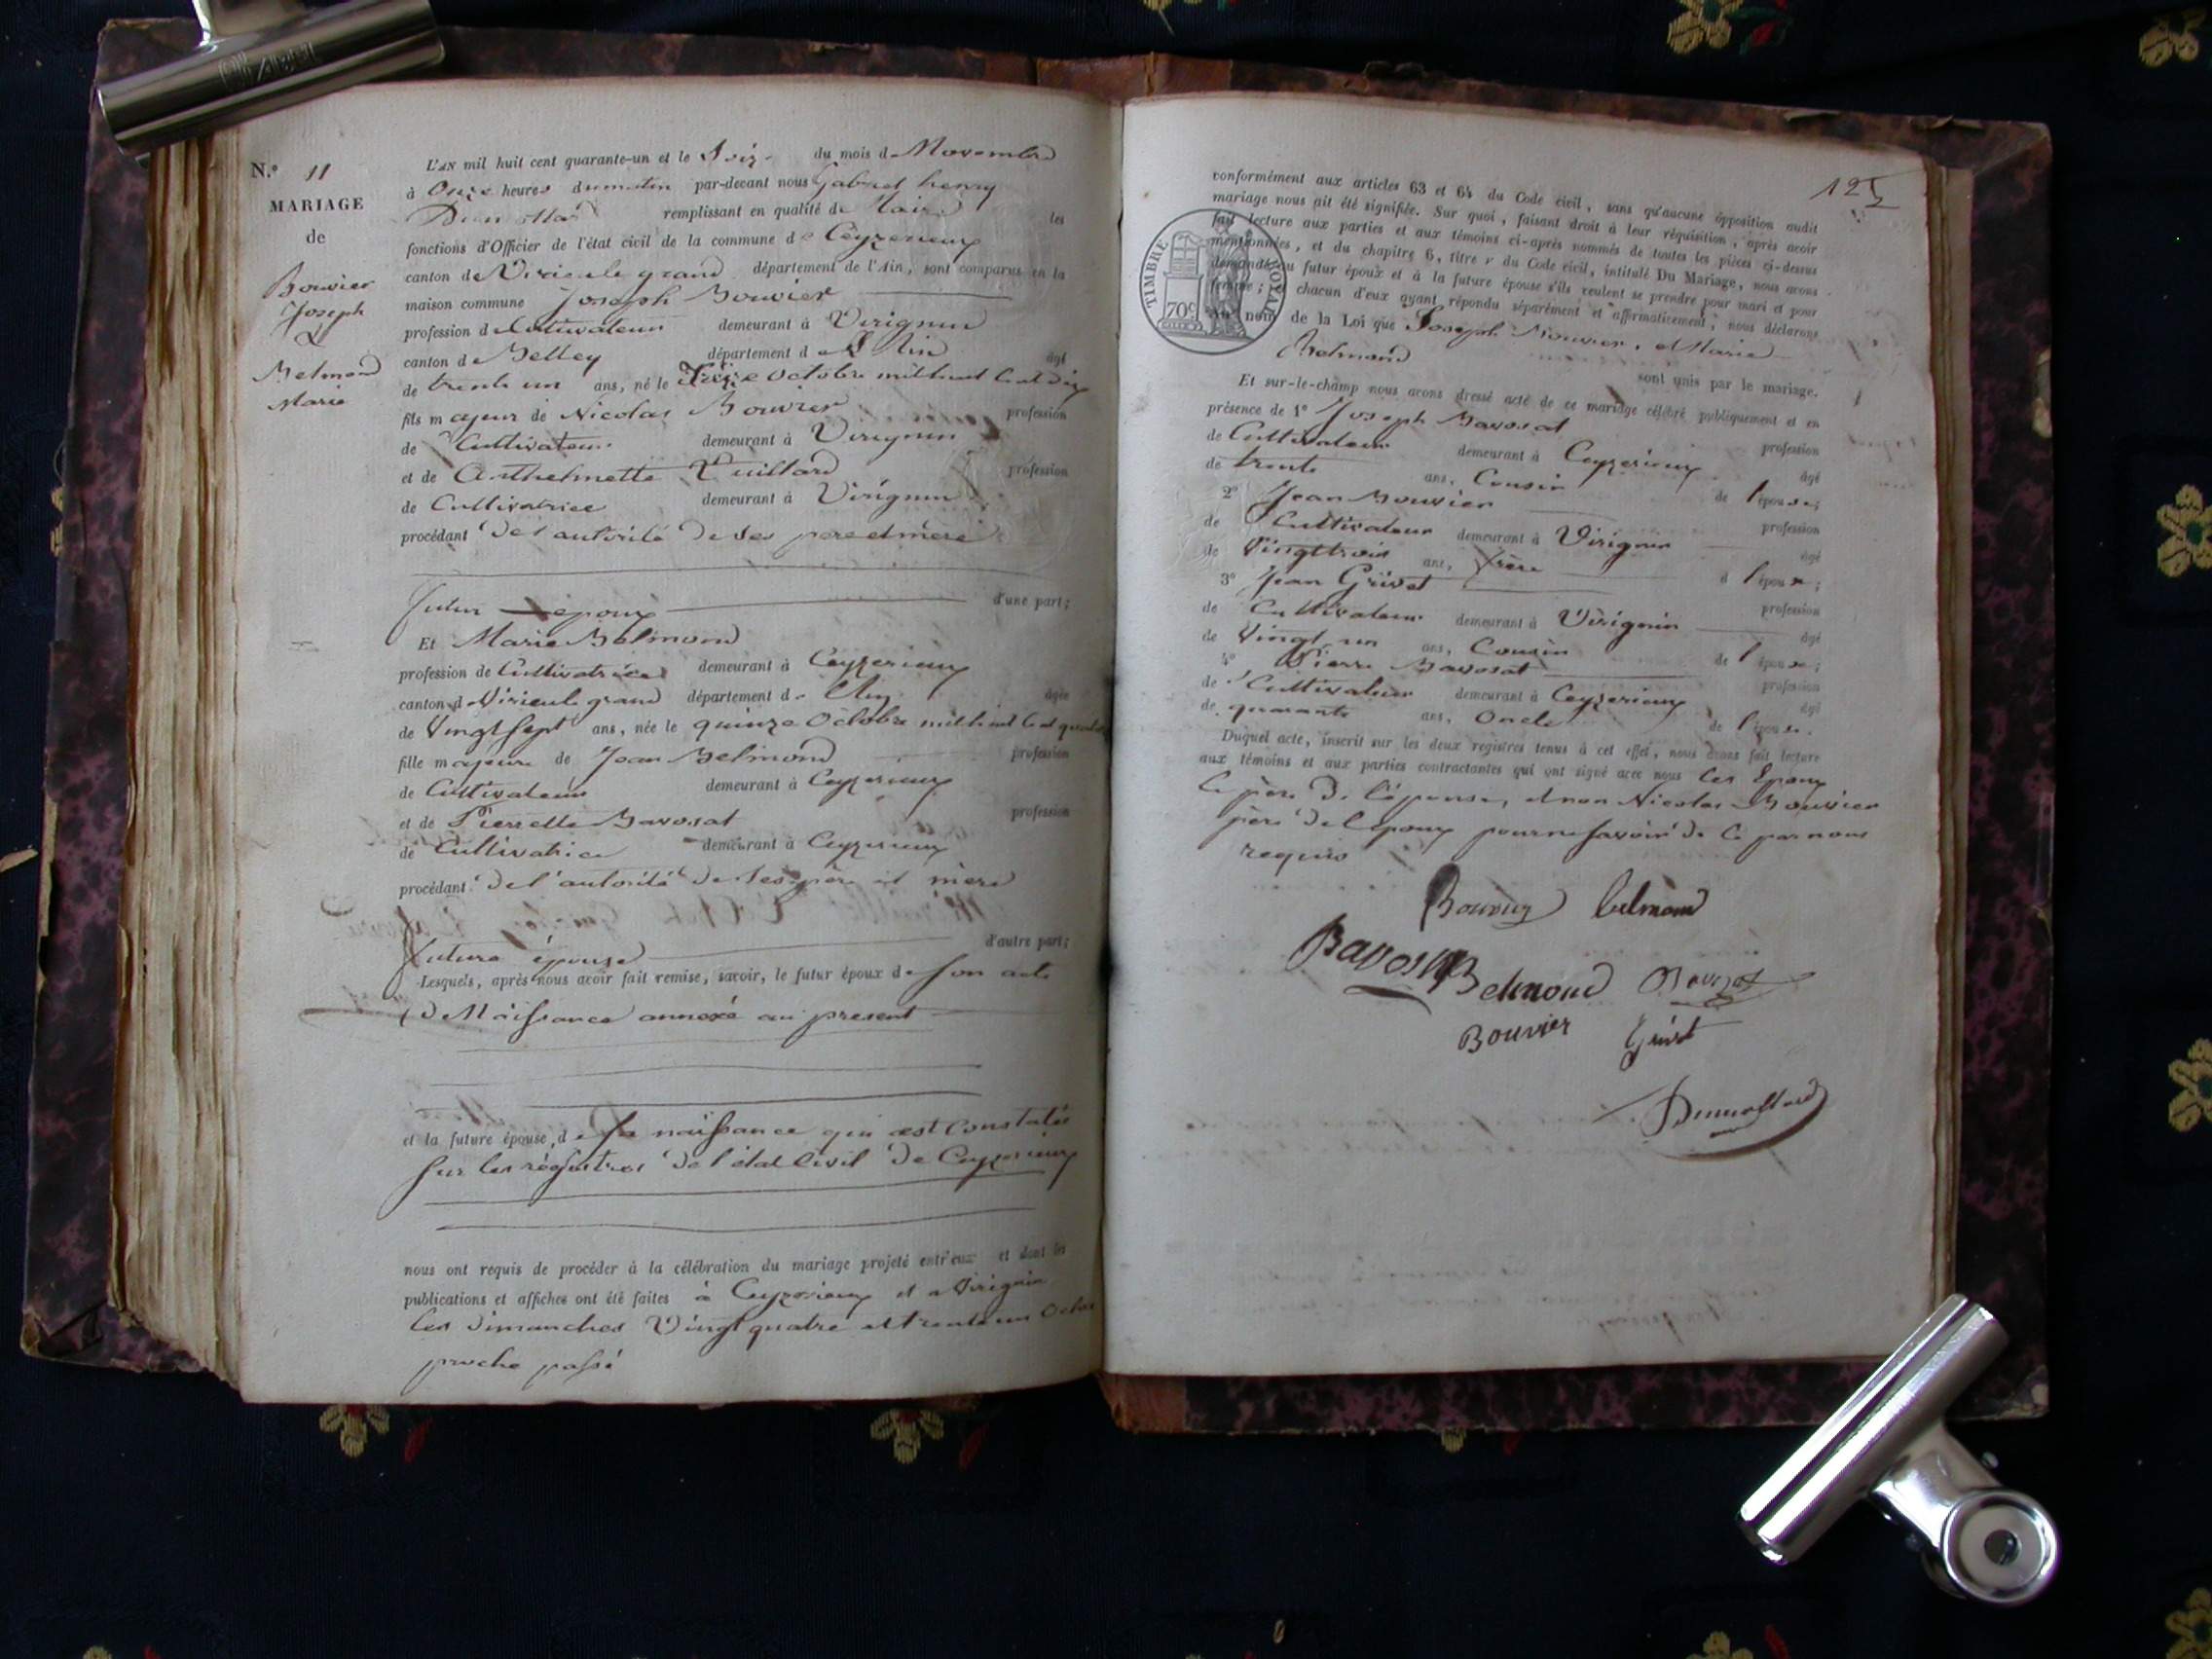 N.º 11
MARIAGE
de
Bouvier
Joseph
&
Belmond
Marie
L'AN mil huit cent quarante-un et le du mois de Novembre
à Onze heures du matin par-devant nous Gabriel henry
Dumollard remplissant en qualité de Maire les
fonctions d'Officier de l'état civil de la commune de Ceyzerieux
canton de Virieu le grand département de l'Ain, sont comparus en la
maison commune Joseph Bouvier
profession de Cultivateur demeurant à Virignin
canton de Belley département de L'Ain âgé
de trente un ans, né le Octobre mil huit cent dix
fils majeur de Nicolas Bouvier profession
de Cultivateur demeurant à Virignin
et de Anthelmette Vuillard profession
de Cultivatrice demeurant à Virignin
procédant de l'autorité de ses pere et mère
futur époux d'une part;
Et Marie Belmond
profession de Cultivatrice demeurant à Ceyzerieux
canton de Virieu le grand département de l'Ain âgée
de Vingt sept ans, née le quinze Octobre mil huit cent quatorze
fille majeure de Jean Belmond profession
de Cultivateur demeurant à Ceyzerieux
et de Pierrette Bavosat profession
de Cultivatrice demeurant à Ceyzerieux
procédant de l'autorité de ses père et mère
future épouse d'autre part;
Lesquels, après nous avoir fait remise, savoir, le futur époux de son acte
de Naissance annexé au present
et la future épouse, de sa naissance qui est constatée
sur les registres de l'état Civil de Ceyzerieux
nous ont requis de procéder à la célébration du mariage projeté entr'eux et dont les
publications et affiches ont été faites à Ceyzerieux et a Virignin
les dimanches Vingt quatre et trente un Octobre
proche passé
125
conformément aux articles 63 et 64 du Code civil, sans qu'aucune opposition audit
mariage nous ait été signifiée. Sur quoi, faisant droit à leur réquisition, après avoir
fait lecture aux parties et aux témoins ci-après nommés de toutes les pièces ci-dessus
mentionnées, et du chapitre 6, titre v du Code civil, intitulé Du Mariage, nous avons
demandé au futur époux et à la future épouse s'ils veulent se prendre pour mari et pour
femme; chacun d'eux ayant répondu séparément et affirmativement, nous déclarons
au nom de la Loi que Joseph Bouvier, et Marie
Belmond
sont unis par le mariage.
TIMBRE ROYAL
70c
Et sur-le-champ nous avons dressé acte de ce mariage célébré publiquement et en
présence de 1º Joseph Bavosat
de Cultivateur demeurant à Ceyzerieux profession
de trente ans, Cousin âgé
de l'épouse;
2º Jean Bouvier
de Cultivateur demeurant à Virignin profession
de Vingt trois ans, frère âgé
d l'époux;
3º Jean Grivet
de Cultivateur demeurant à Virignin profession
de Vingt un ans, Cousin âgé
de l'époux;
4º Pierre Bavosat
de Cultivateur demeurant à Ceyzerieux profession
de quarante ans, Oncle âgé
de l'épouse.
Duquel acte, inscrit sur les deux registres tenus à cet effet, nous avons fait lecture
aux témoins et aux parties contractantes qui ont signé avec nous les Epoux
le père de l'épouse, et non Nicolas Bouvier
père de l'epoux pour ne savoir de ce par nous
requis
Bouvier belmond
Bavosat Belmond Bavozat
Bouvier Grivet
Dumollard